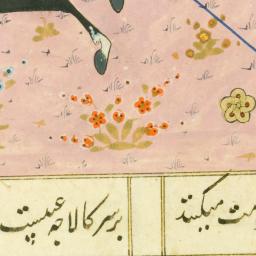 مت میکنند
بر سر کالا چه عیبست